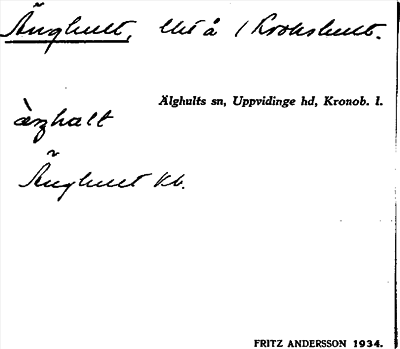 Änghult, Ut å / Krokshult.
Älghults sn, Uppvidinge hd, Kronob. l.
Änghult Kb.
FRITZ ANDERSSON 1934.